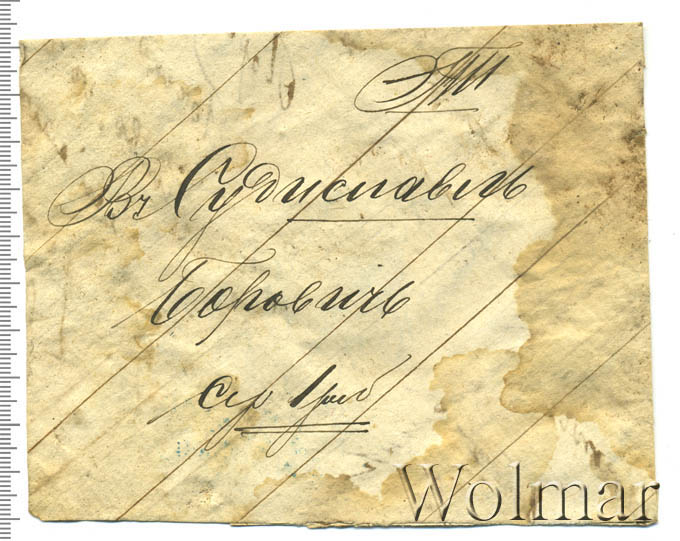 Въ Судиславль
Боровичъ
сер 1 руб
Wolmar